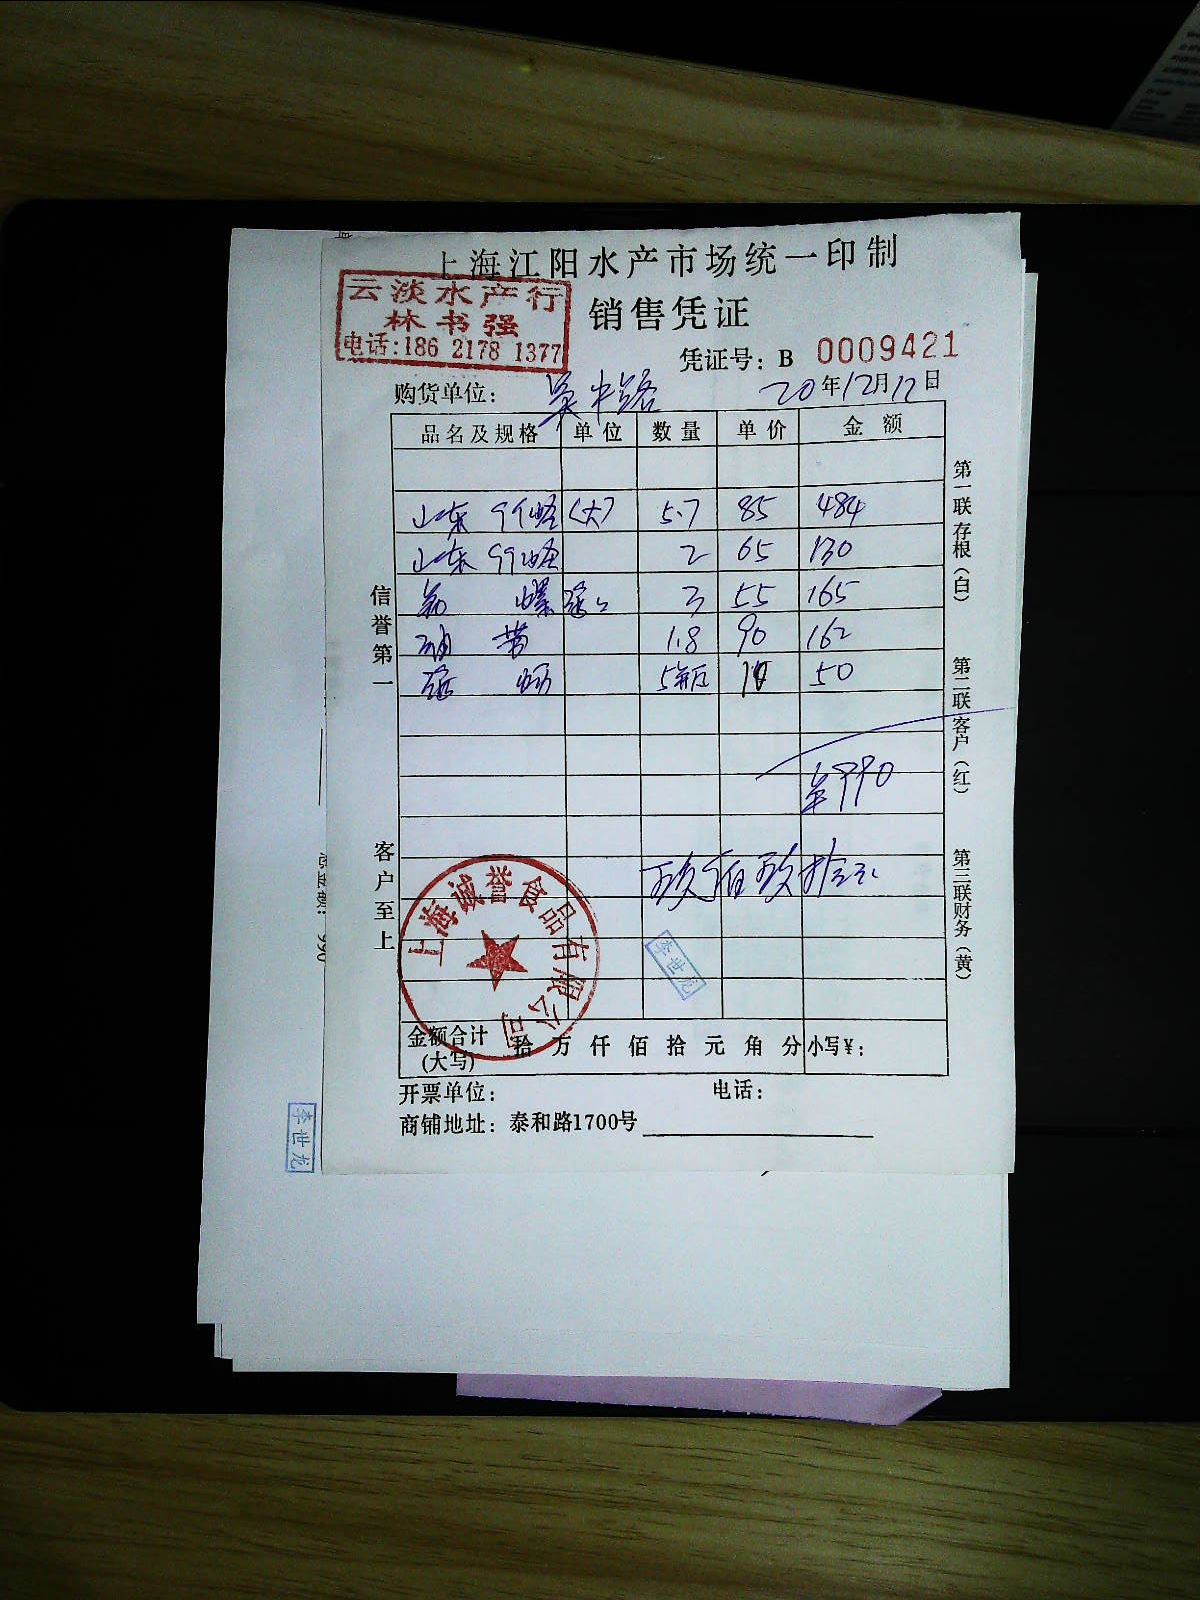 上海江阳水产市场统一印制
云淡水产行
林书强
电话:186 2178 1377
销售凭证
凭证号: B 0009421
购货单位: 吴中路 20年12月12日
品名及规格 单位 数量 单价 金额
山东 (大) 5.7 85 484
山东 2 65 130
螺 3 55 165
带 1.8 90 162
5 10 50
¥990
玖佰玖拾元
信誉第一
客户至上
第一联存根(白)
第二联客户(红)
第三联财务(黄)
上海诚誉食品有限公司
李世龙
金额合计(大写) 拾 万 仟 佰 拾 元 角 分 小写¥:
开票单位: 电话:
商铺地址: 泰和路1700号
李世龙